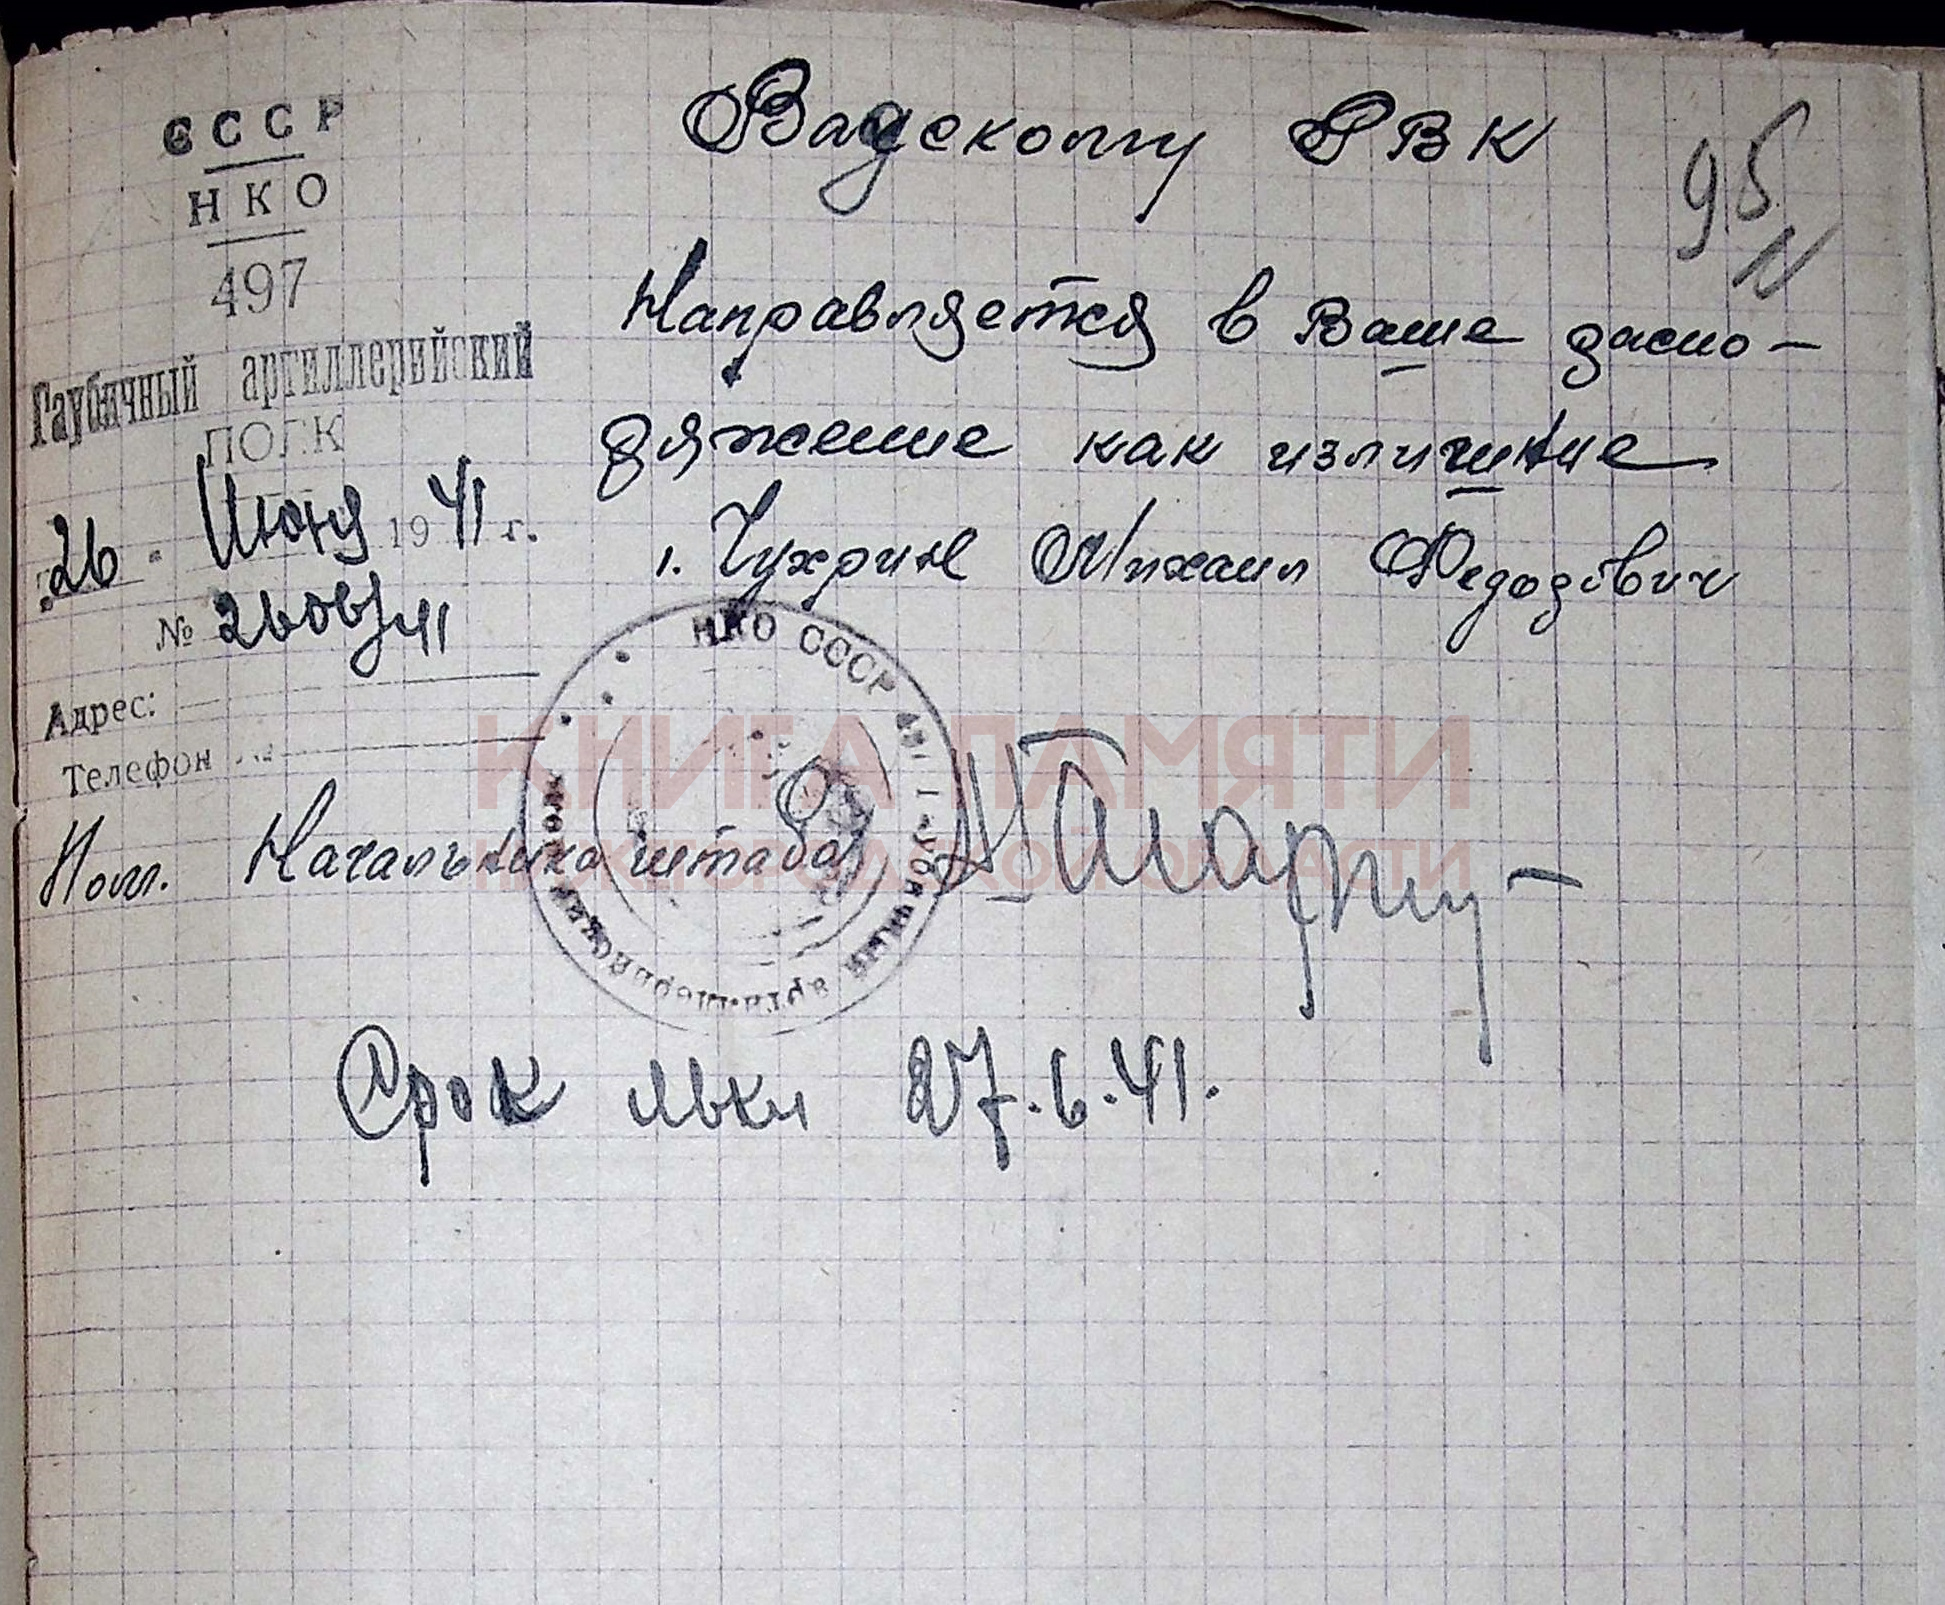 СССР
НКО
497
Гаубичный артиллерийский
ПОЛК
26 Июня 1941 г.
№ 2606/41
Адрес:
Телефон
Вадскому РВК
95
Направляется в Ваше распо-
ряжение как излишние
1. Чухрин Михаил Федорович
НКО СССР 497 Гаубичный артиллерийский полк
Пом. Начальника штаба
Срок явки 27.6.41.
КНИГА ПАМЯТИ
НИЖЕГОРОДСКОЙ ОБЛАСТИ